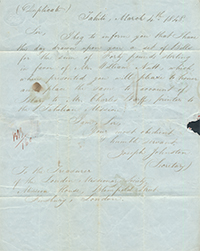 (Duplicate)
Tahiti, March 4th 1843
Sir,
I beg to inform you that I have
this day drawn upon you a set of bills
for the sum of Forty pounds sterling
in favor of Mr William
when presented you will please to honor
and place the same to account of
to Mr Charles printer to
the
I am Sir
Your most obedient
humble servant
Joseph Johnston
(Secretary)
To the Treasurer
of the London Missionary Society
House, Blomfield Street
Finsbury, London